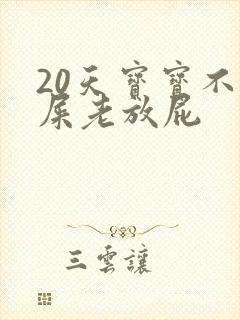 20天寶寶不
屎老放屁
三雲讓